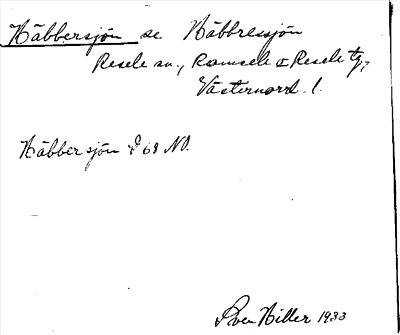 Näbbersjön se Näbbressjön
Resele sn., Ramsele & Resele tg,
Västernorrl. l.
Näbbersjön 68 NO.
Sven Hiller 1933